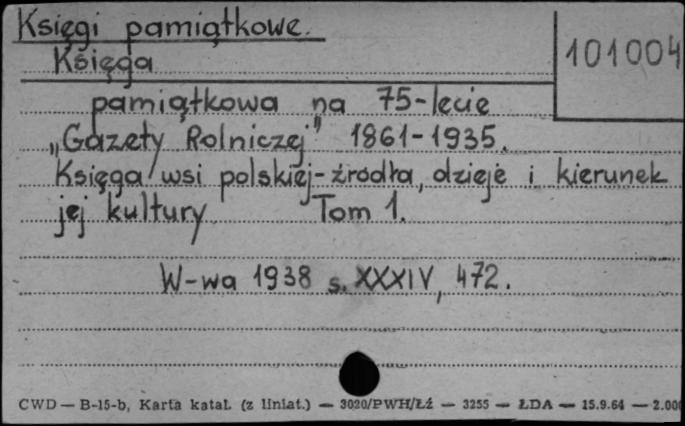 Księgi pamiątkowe.
101004
Księga
pamiątkowa na 75-lecie
„Gazety Rolniczej" 1861-1935.
Księga wsi polskiej - źródła, dzieje i kierunek
jej kultury. Tom 1.
W-wa 1938 s. XXXIV, 472.
CWD — B-15-b, Karta katal. (z liniat.) — 3020/PWH/Łź — 3255 — ŁDA — 15.9.64 — 2.000